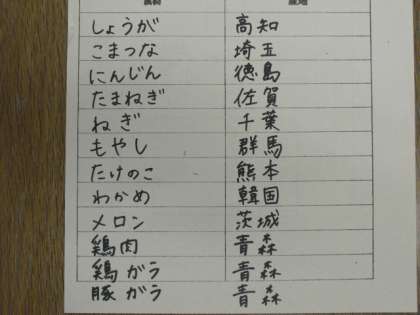 しょうが 高知
こまつな 埼玉
にんじん 徳島
たまねぎ 佐賀
ねぎ 千葉
もやし 群馬
たけのこ 熊本
わかめ 韓国
メロン 茨城
鶏肉 青森
鶏ガラ 青森
豚ガラ 青森